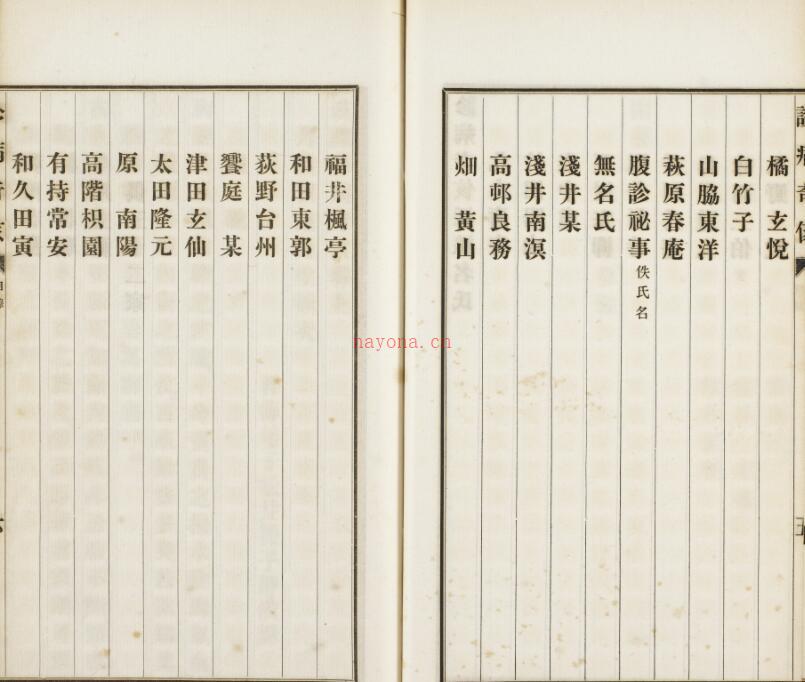 橘 玄悅
白竹子
山脇東洋
萩原春庵
腹診祕事佚氏名
無名氏
淺井某
淺井南溟
高邨良務
畑 黃山
福井楓亭
和田東郭
荻野台州
饗庭 某
津田玄仙
太田隆元
原 南陽
高階枳園
有持常安
和久田寅
nayona.cn